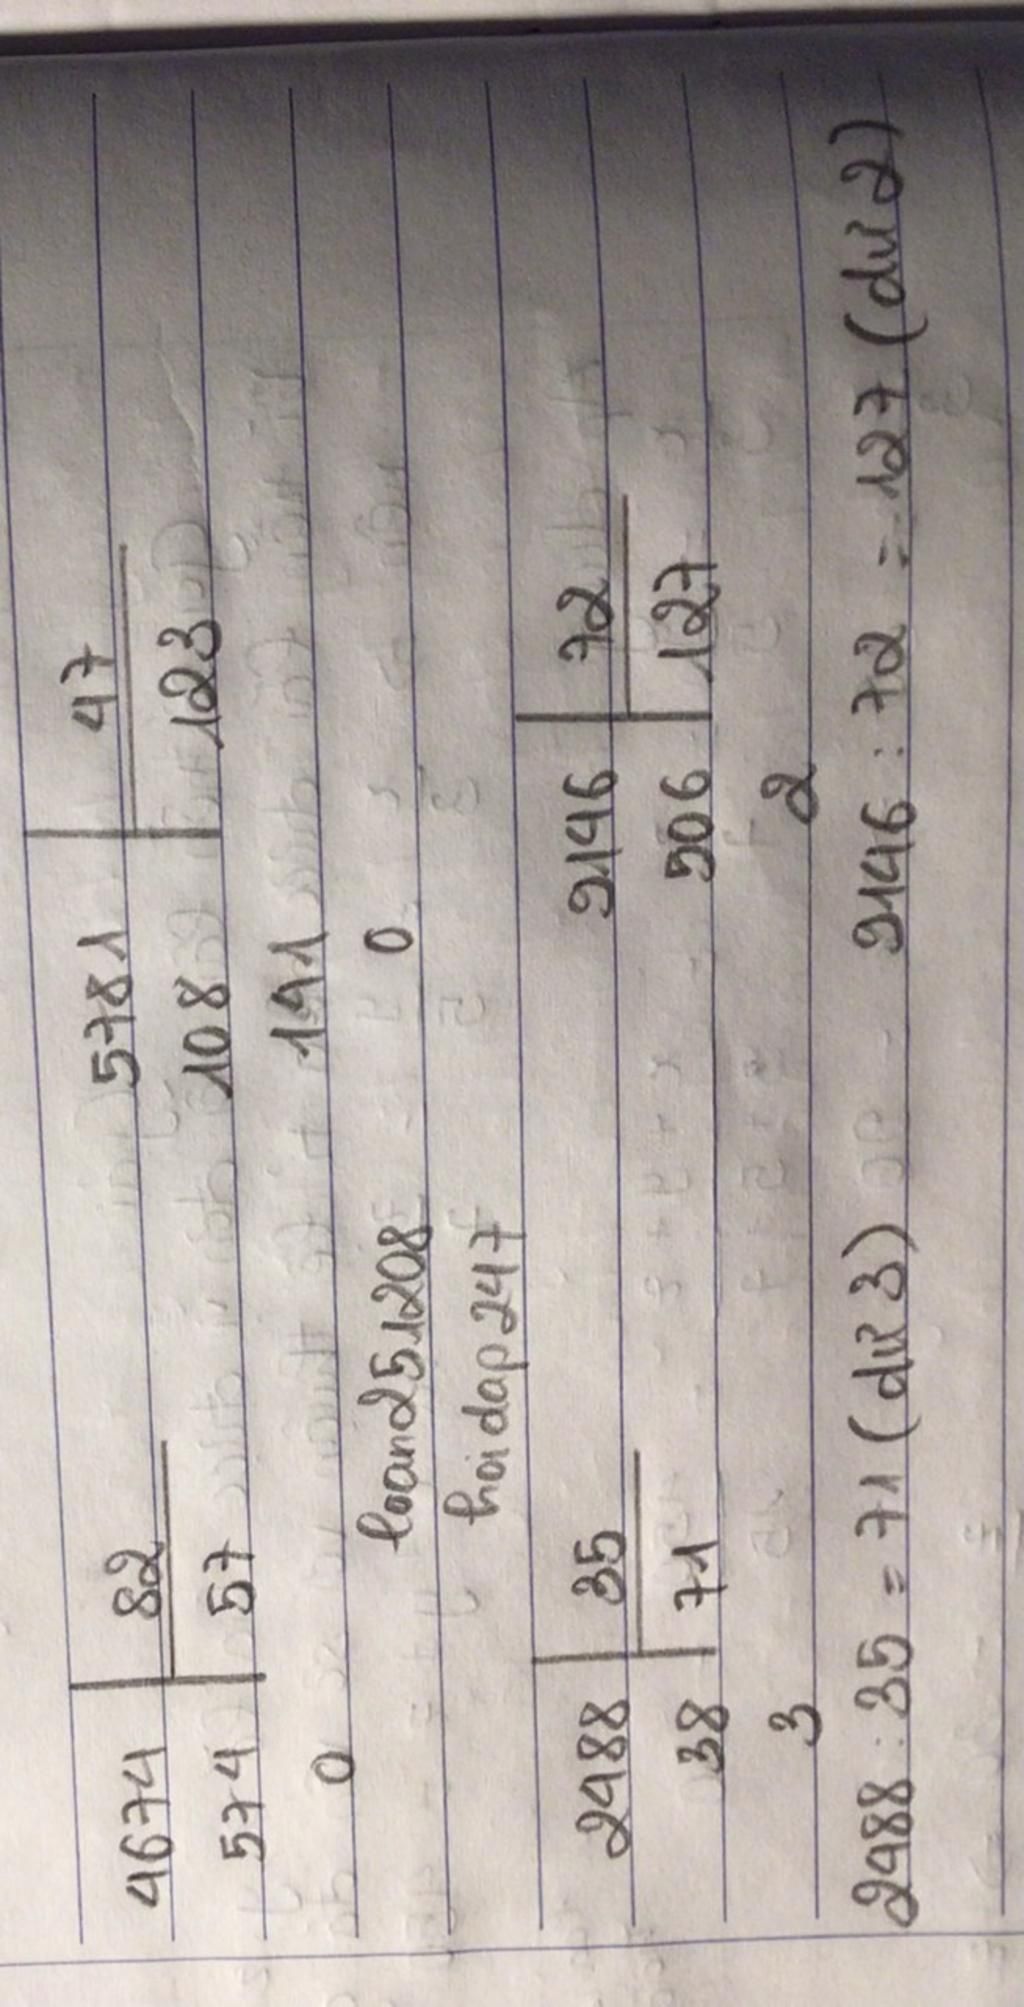 4674 82 5781 47
574 57 108 123
0 141
loan251208 0
hoidap247
2488 35 9146 72
38 71 506 127
3 2
2488 : 35 = 71 (dư 3) 9146 : 72 = 127 (dư 2)